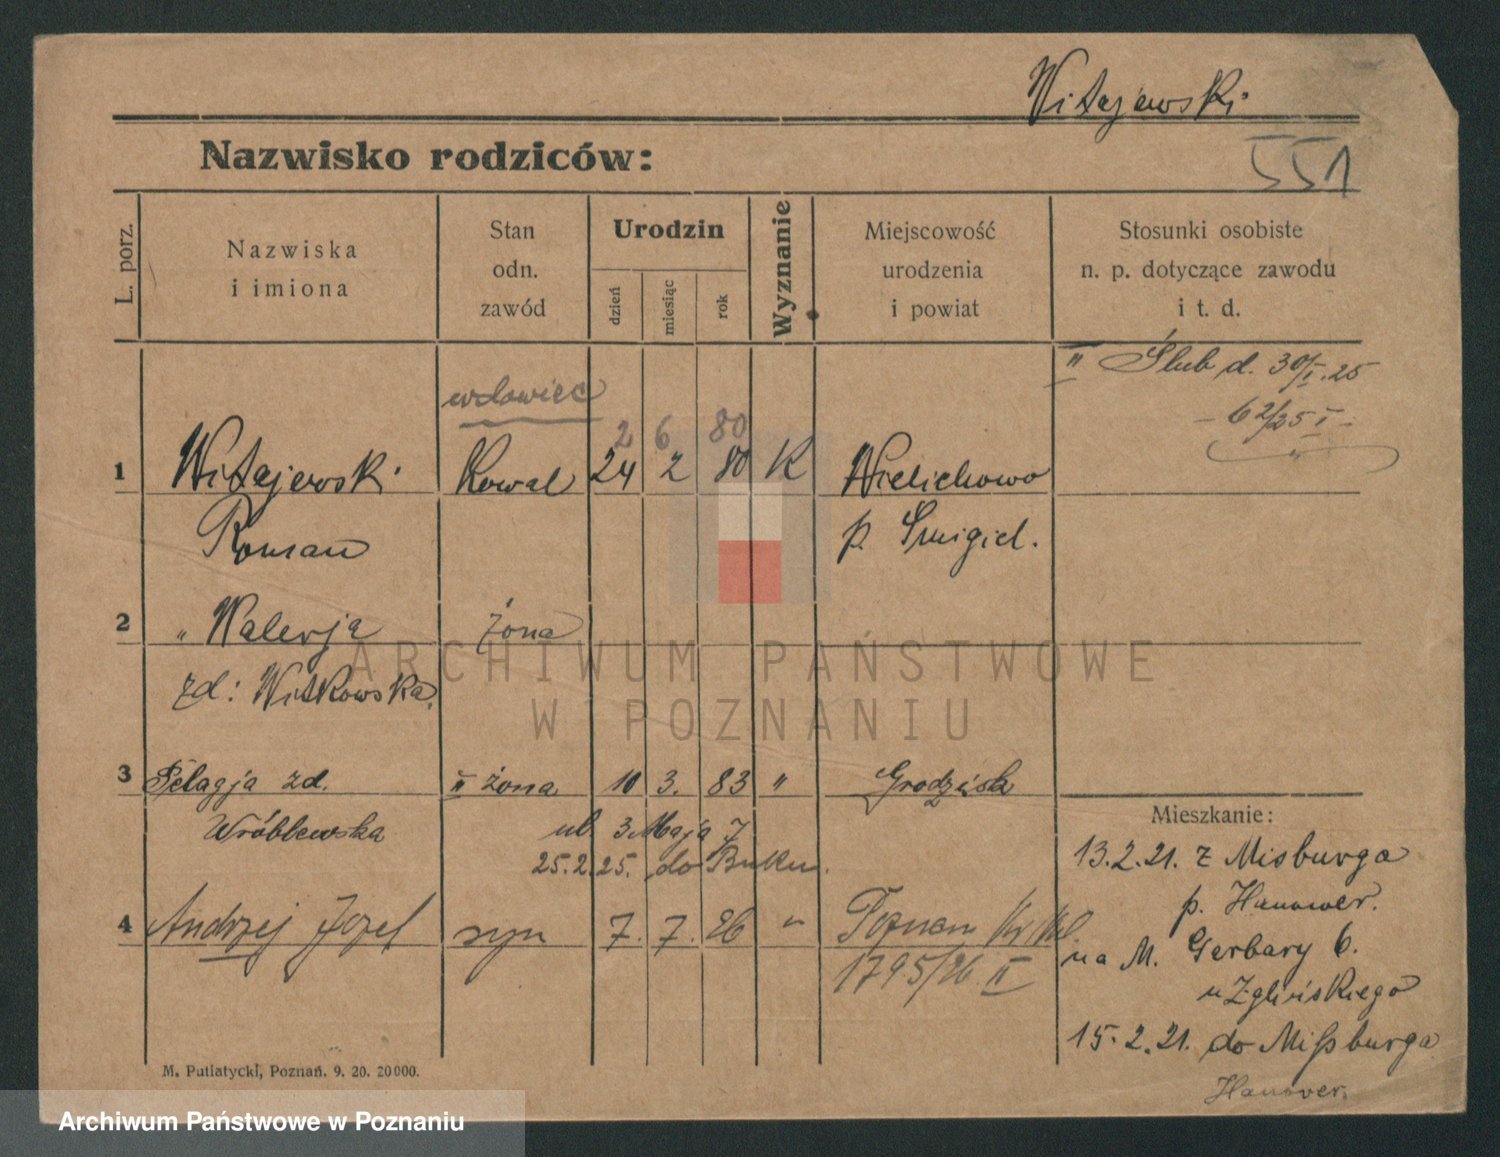 Witajewski.
Nazwisko rodziców:
551
L. porz.
Nazwiska
i imiona
Stan
odn.
zawód
Urodzin
dzień
miesiąc
rok
Wyznanie
Miejscowość
urodzenia
i powiat
Stosunki osobiste
n. p. dotyczące zawodu
i t. d.
II Ślub d. 30/I.25
- 62/25 I -
wdowiec
2 6 80
1 Witajewski Kowal 24 2 80 K Wielichowo
Roman p. Śmigiel.
2 " Walerja żona
zd: Witkowska.
3 Pelagja zd. II żona 10 3. 83 " Grodzisk
Wróblewska ul. 3 Maja 7
25.2.25. do Buku.
4 Andrzej Józef syn 7. 7. 26 " Poznań
1795/26 II
Mieszkanie:
13.2.21. z Misburga
p. Hanower.
na M. Gerbary 6.
u Zglińskiego
15.2.21. do Mißburga
Hanover.
M. Putiatycki, Poznań. 9. 20. 20000.
ARCHIWUM PAŃSTWOWE
W POZNANIU
Archiwum Państwowe w Poznaniu